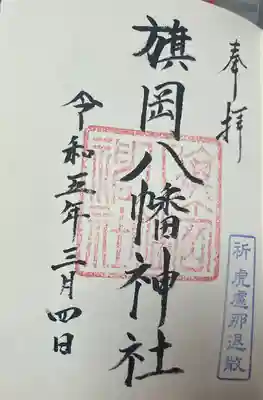 奉拝
祈 虎盧那退散
旗岡八幡神社
令和五年三月四日